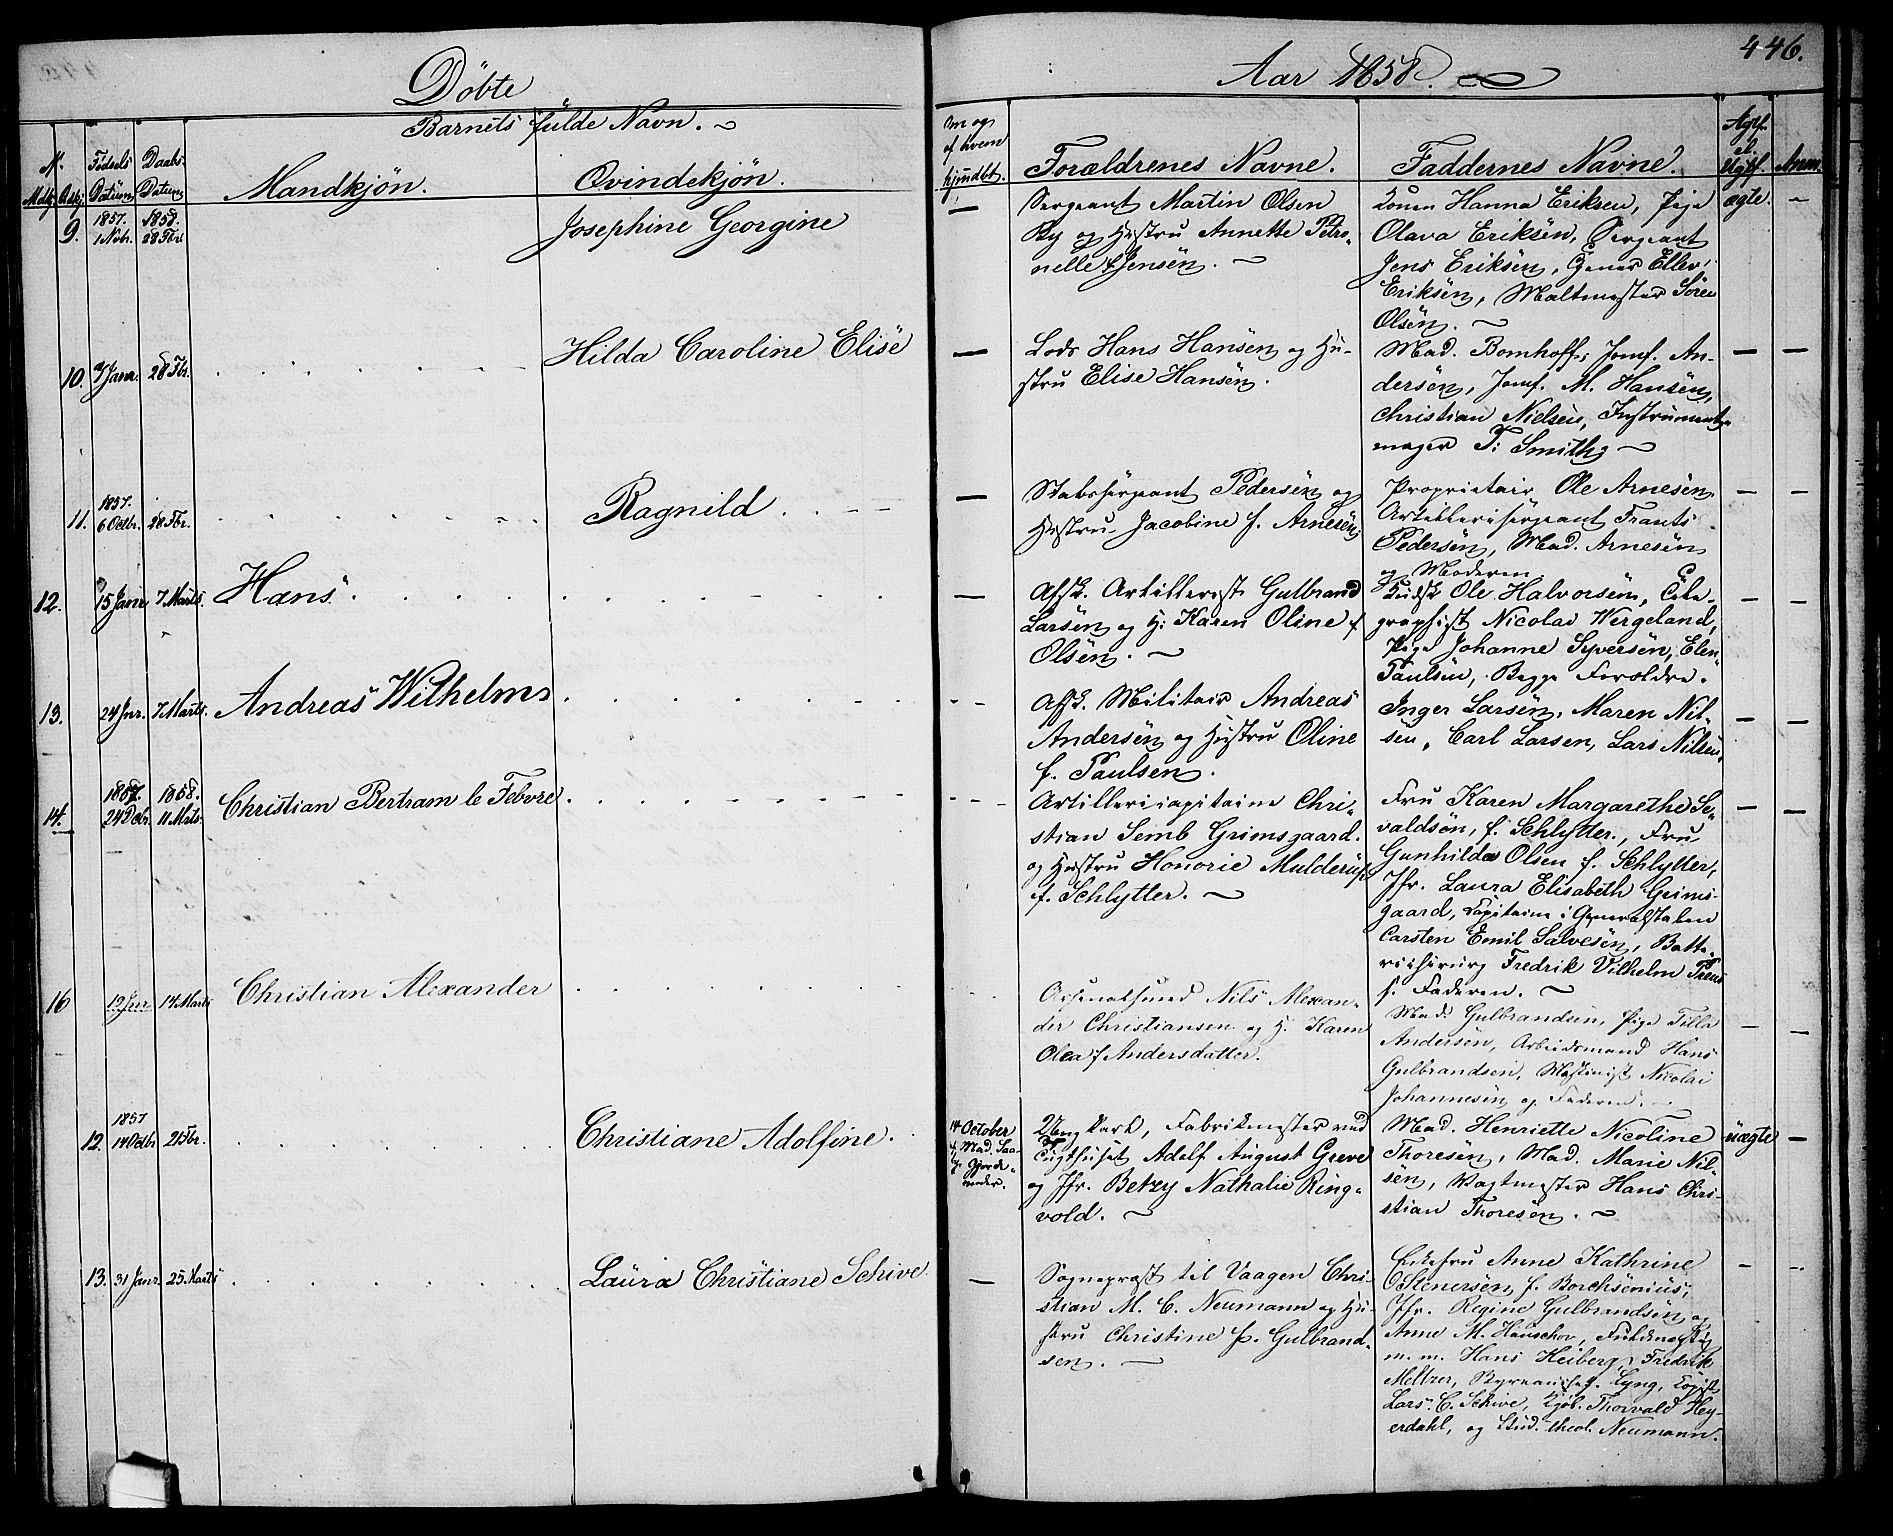 Döbte
Aar 1858.
446.
Barnets fülde Navn.
No.
Fødsels
Daabs-
Mandkjøn.
Qvindekjøn.
Datum
Datum
Forældrenes Navne.
Faddernes Navne.
Anm.
9.
1857.
1 Nvbr.
1858.
28 Fbr.
Josephine Georgine
—
Sergeant Martin Olsen
By og Hustru Annette Petro-
nelle f. Jensen.
Konen Hanna Eriksen, Pige
Olava Eriksen, Sergeant
Jens Eriksen, Ellev
Eriksen, Maltmester Sören
Olsen.
ægte.
10.
7 Janr.
28 Fbr.
Hilda Caroline Elise
—
Lods Hans Hansen og Hu-
stru Elise Hansen.
Mad. Bomhoff, Jomf. An-
dersen, Jomf. M. Hansen,
Christian Nielsen, Instrument-
mager T. Smith
11.
1857.
6 Octbr.
28 Fbr.
Ragnild
—
Stabssergeant Pedersen og
Hustru Jacobine f. Arnesen
Proprietair Ole Arnesen
Artillerisergeant Frants
Pedersen, Mad. Arnesen
og Moderen
12.
15 Janr
7 Marts.
Hans
—
Afsk. Artillerist Gulbrand
Larsen og H. Karen Oline f
Olsen.
Kudsk Ole Halvorsen, Tele-
graphist Nicolai Wergeland,
Pige Johanne Syversen, Elen
Paulsen, Begge Forældre.
13.
24 Jnr.
7 Marts.
Andreas Wilhelms
Afsk. Militair Andreas
Andersen og Hustru Oline
f. Paulsen.
Inger Larsen, Maren Nil-
sen, Carl Larsen, Lars Nilsen.
14.
1857.
24 Dcbr.
1858.
11 Mrts.
Christian Bertram le Febvre
Artillericapitaine Chri-
stian Semb Grimsgaard
og Hustru Honorie Mulderup
f. Schlytter.
Fru Karen Margarethe Se-
valdsön, f. Schlytter, Fru
Gunhilda Olsen f. Schlytter,
Jfr. Laura Elisabeth Grims-
gaard, Capitaine i Generalstaben
Carsten Emil Salvesen, Batte-
richirurg Fredrik Vilhelm
f. Faderen.
16
19 Jnr
14 Marts
Christian Alexander
Arsenalsmed Nils Alexan-
der Christiansen og H. Karen
Olea f Andersdatter.
Mad. Gulbrandsen, Pige Tilla
Andersen, Arbeidsmand Hans
Gulbrandsen, Maskinist Nicolai
Johannesen og Faderen.
12.
1857
14 Octbr
21 Fbr.
Christiane Adolfine.
14 October
f. Mad. Saa-
by. Gjorde-
moder.
Ungkarl, Fabrikmester ved
Tugthuset Adolf August Greve
og Jfr. Betzy Nathalie Ring-
vold.
Mad. Henriette Nicoline
Thoresen, Mad. Marie Nil-
sen, Vagtmester Hans Chri-
stian Thoresen.
uægte
13.
31 Janr.
25 Marts
Laura Christiane Schive.
—
Sognepræst til Vaagen Chri-
stian M. C. Neumann og Hu-
stru Christine f. Gulbrand-
sen.
Enkefru Anne Kathrine
Stenersen f. Borchsenius,
Jfr. Regine Gulbrandsen og
Anne M. Hauschov, Fuldmægtig
m. m. Hans Heiberg, Fredrik
Meltzer, Byreauchef Lyng, Copist
Lars C. Schive, Kjöb. Thorvald Hey-
erdahl, og Stud. theol. Neumann.